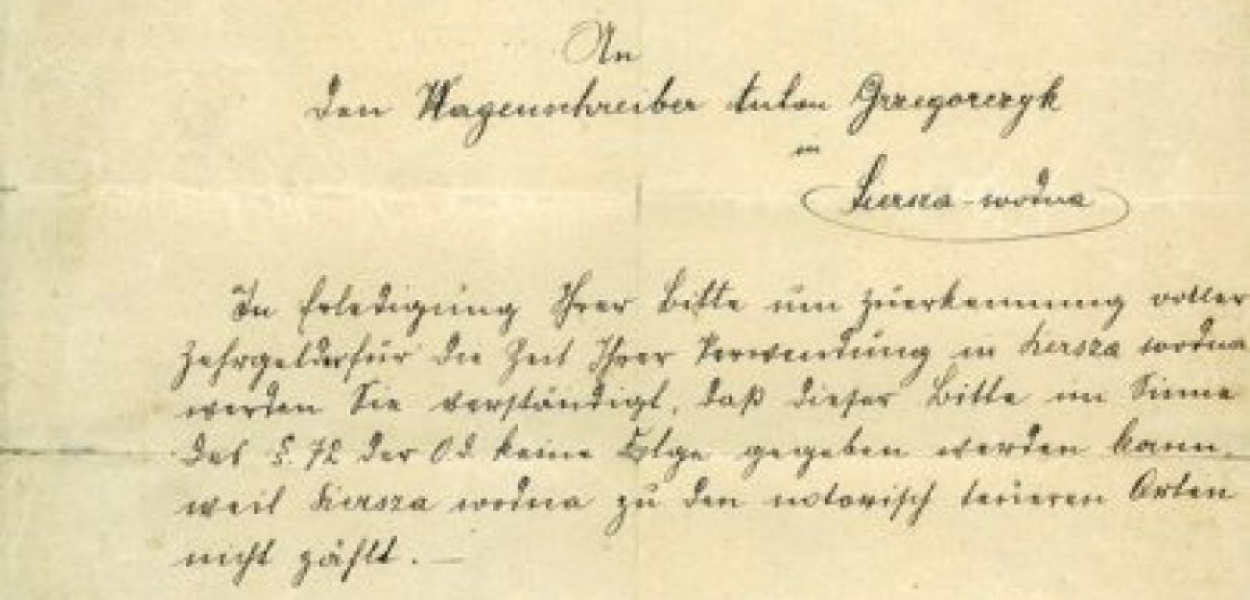 An
den Wagenschreiber Anton Grzegorczyk
in
Siersza-wodna
In Erledigung Ihrer Bitte um Zuerkennung voller
Zehrgelder für die Zeit Ihrer Verwendung in Siersza wodna
werden Sie verständigt, daß dieser Bitte im Sinne
des §. 72 der Od. keine Folge gegeben werden kann,
weil Siersza wodna zu den notorisch teueren Orten
nicht zählt. —